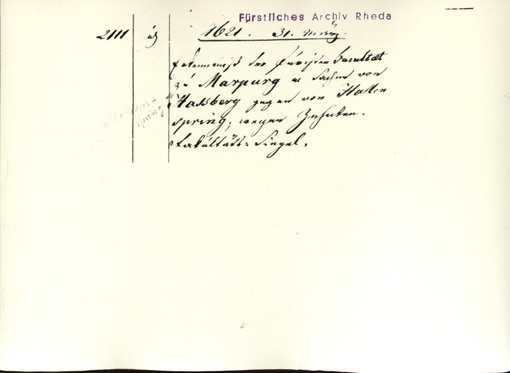 Fürstliches Archiv Rheda
2111
1621. 31. März.
Erkenntniß der Juristen Facultät
zu Marpurg in Sachen von
Hatzberg gegen von Haken
spring, wegen Zehnten.
Facultäts-Siegel.